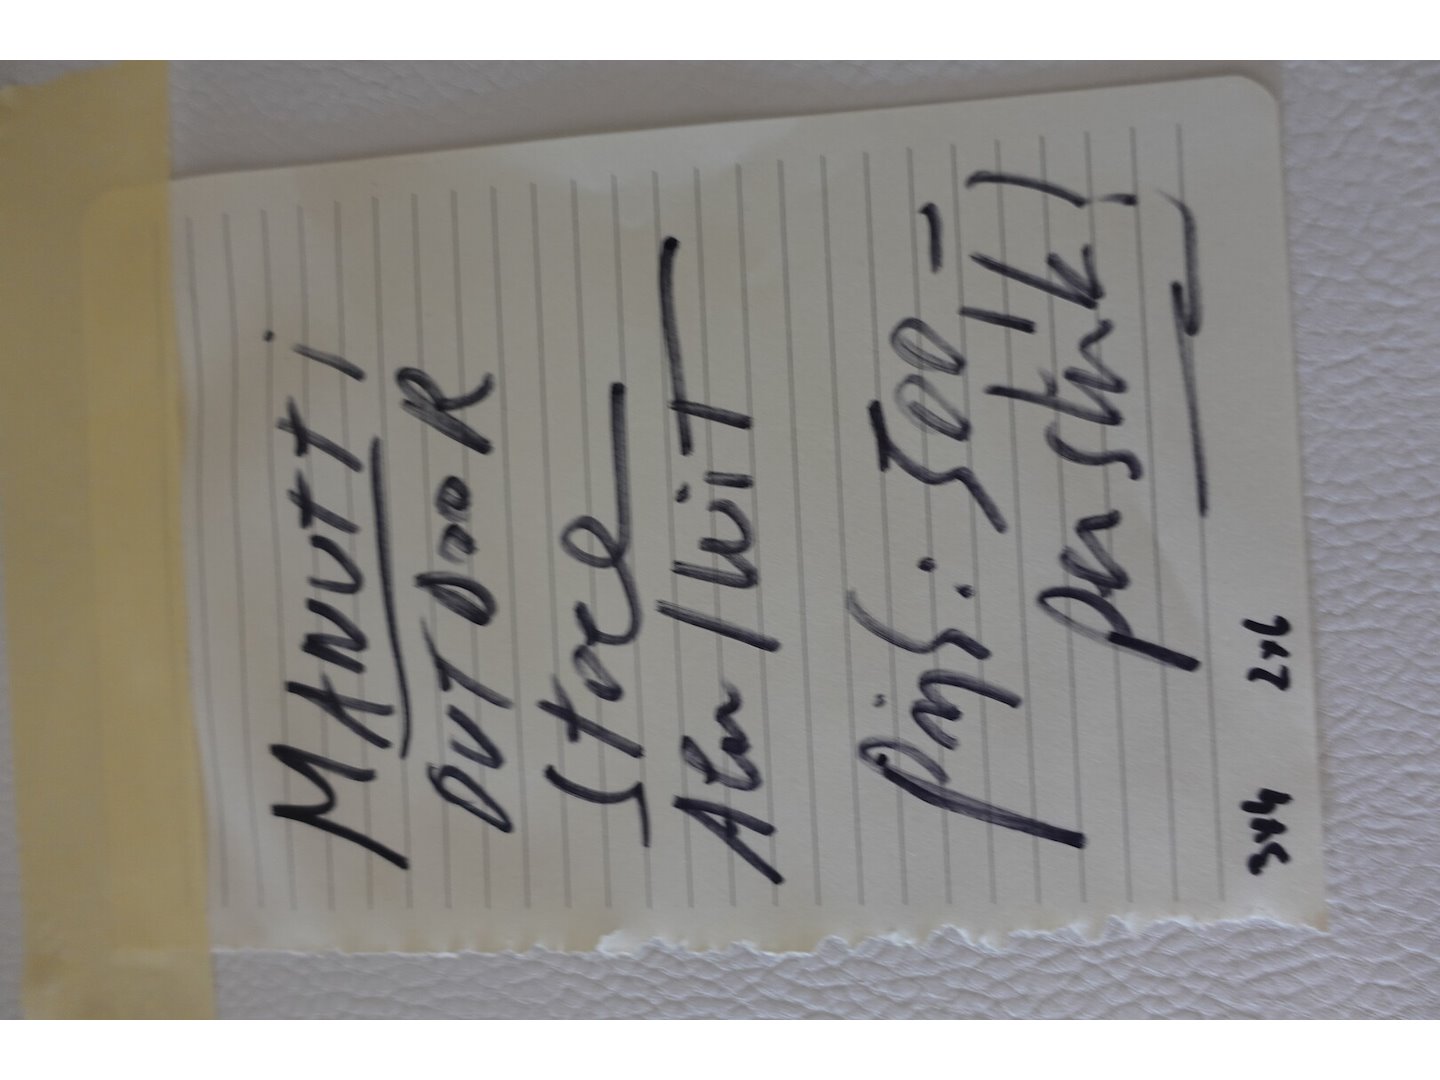 MANUTTi
OUTDOOR
Stoel
Alu/WiT
Prijs: 500 -
per stuk!
3x4 2x6